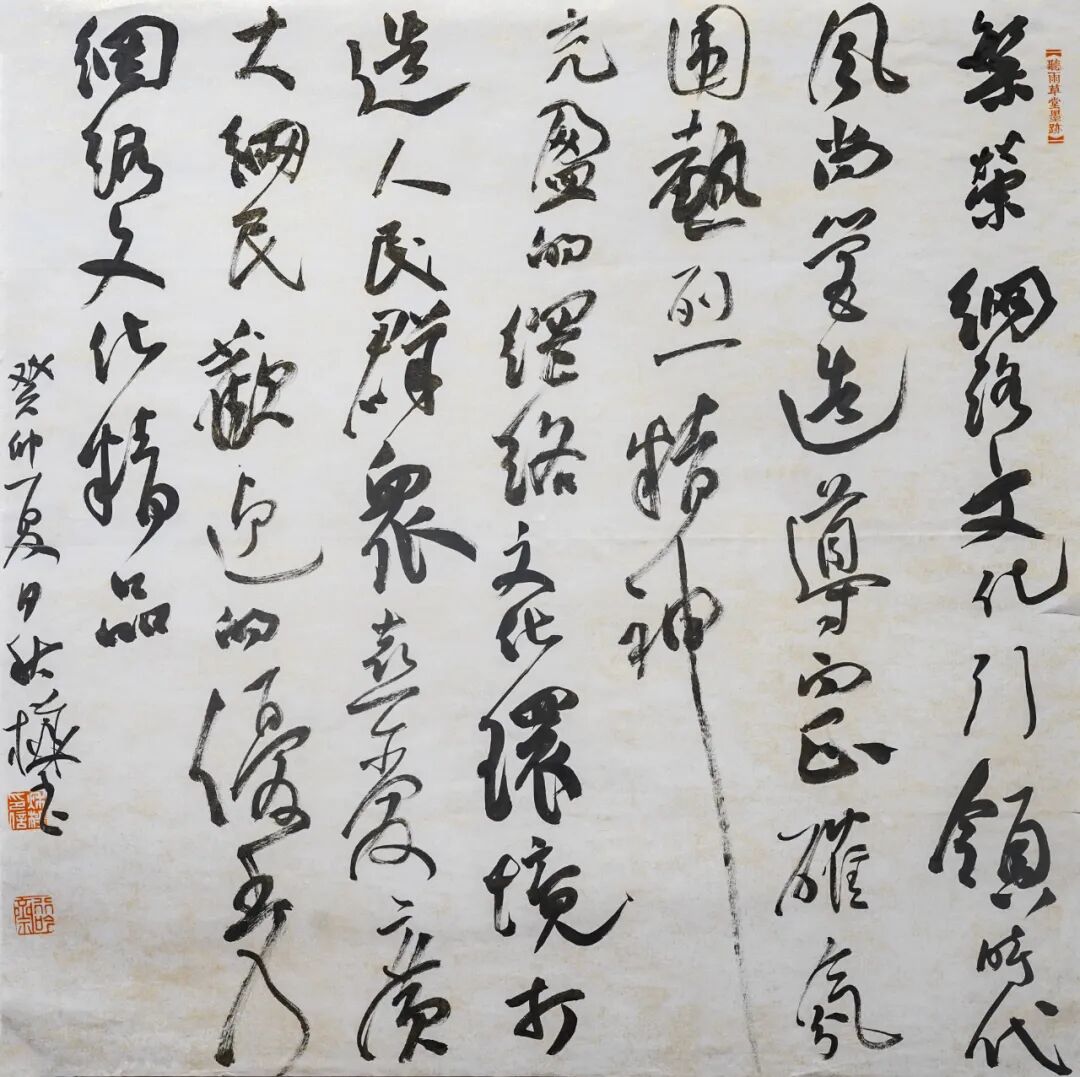 【聽雨草堂墨跡】
繁榮網絡文化引領時代
風尚營造導向正確氛
围熱烈精神
充盈的網絡文化環境打
造人民群眾喜愛廣
大網民歡迎的優秀
網絡文化精品
癸卯夏日秋